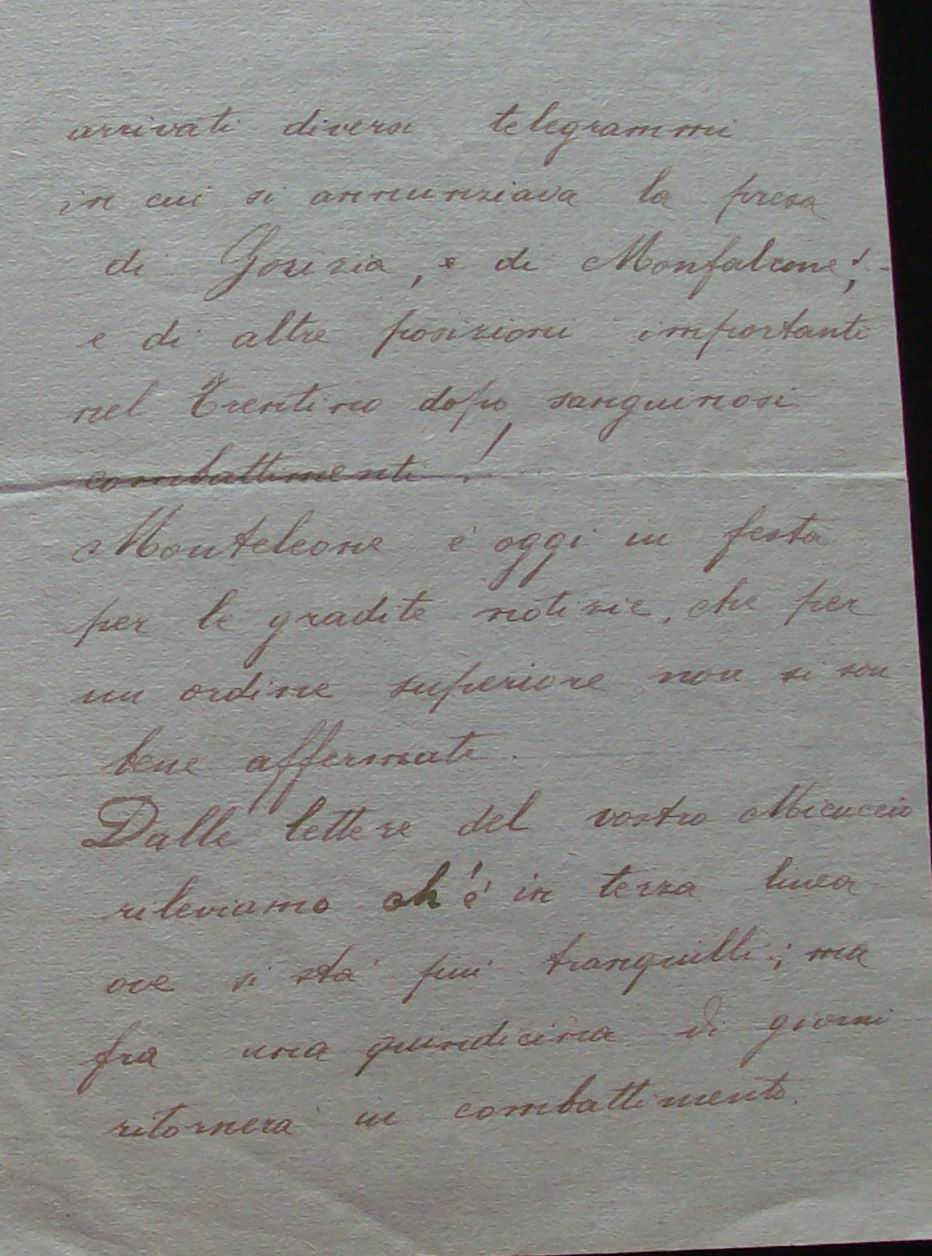 arrivati diversi telegrammi
in cui si annunziava la presa
di Gorizia, e di Monfalcone!
e di altre posizioni importanti
nel Trentino dopo sanguinosi
combattimenti!
Monteleone è oggi in festa
per le gradite notizie, che per
un ordine superiore non si son
bene affermate.
Dalle lettere del vostro Micuccio
rileviamo ch'è in terza linea
ove si stà più tranquilli; ma
fra una quindicina di giorni
ritornerà in combattimento.